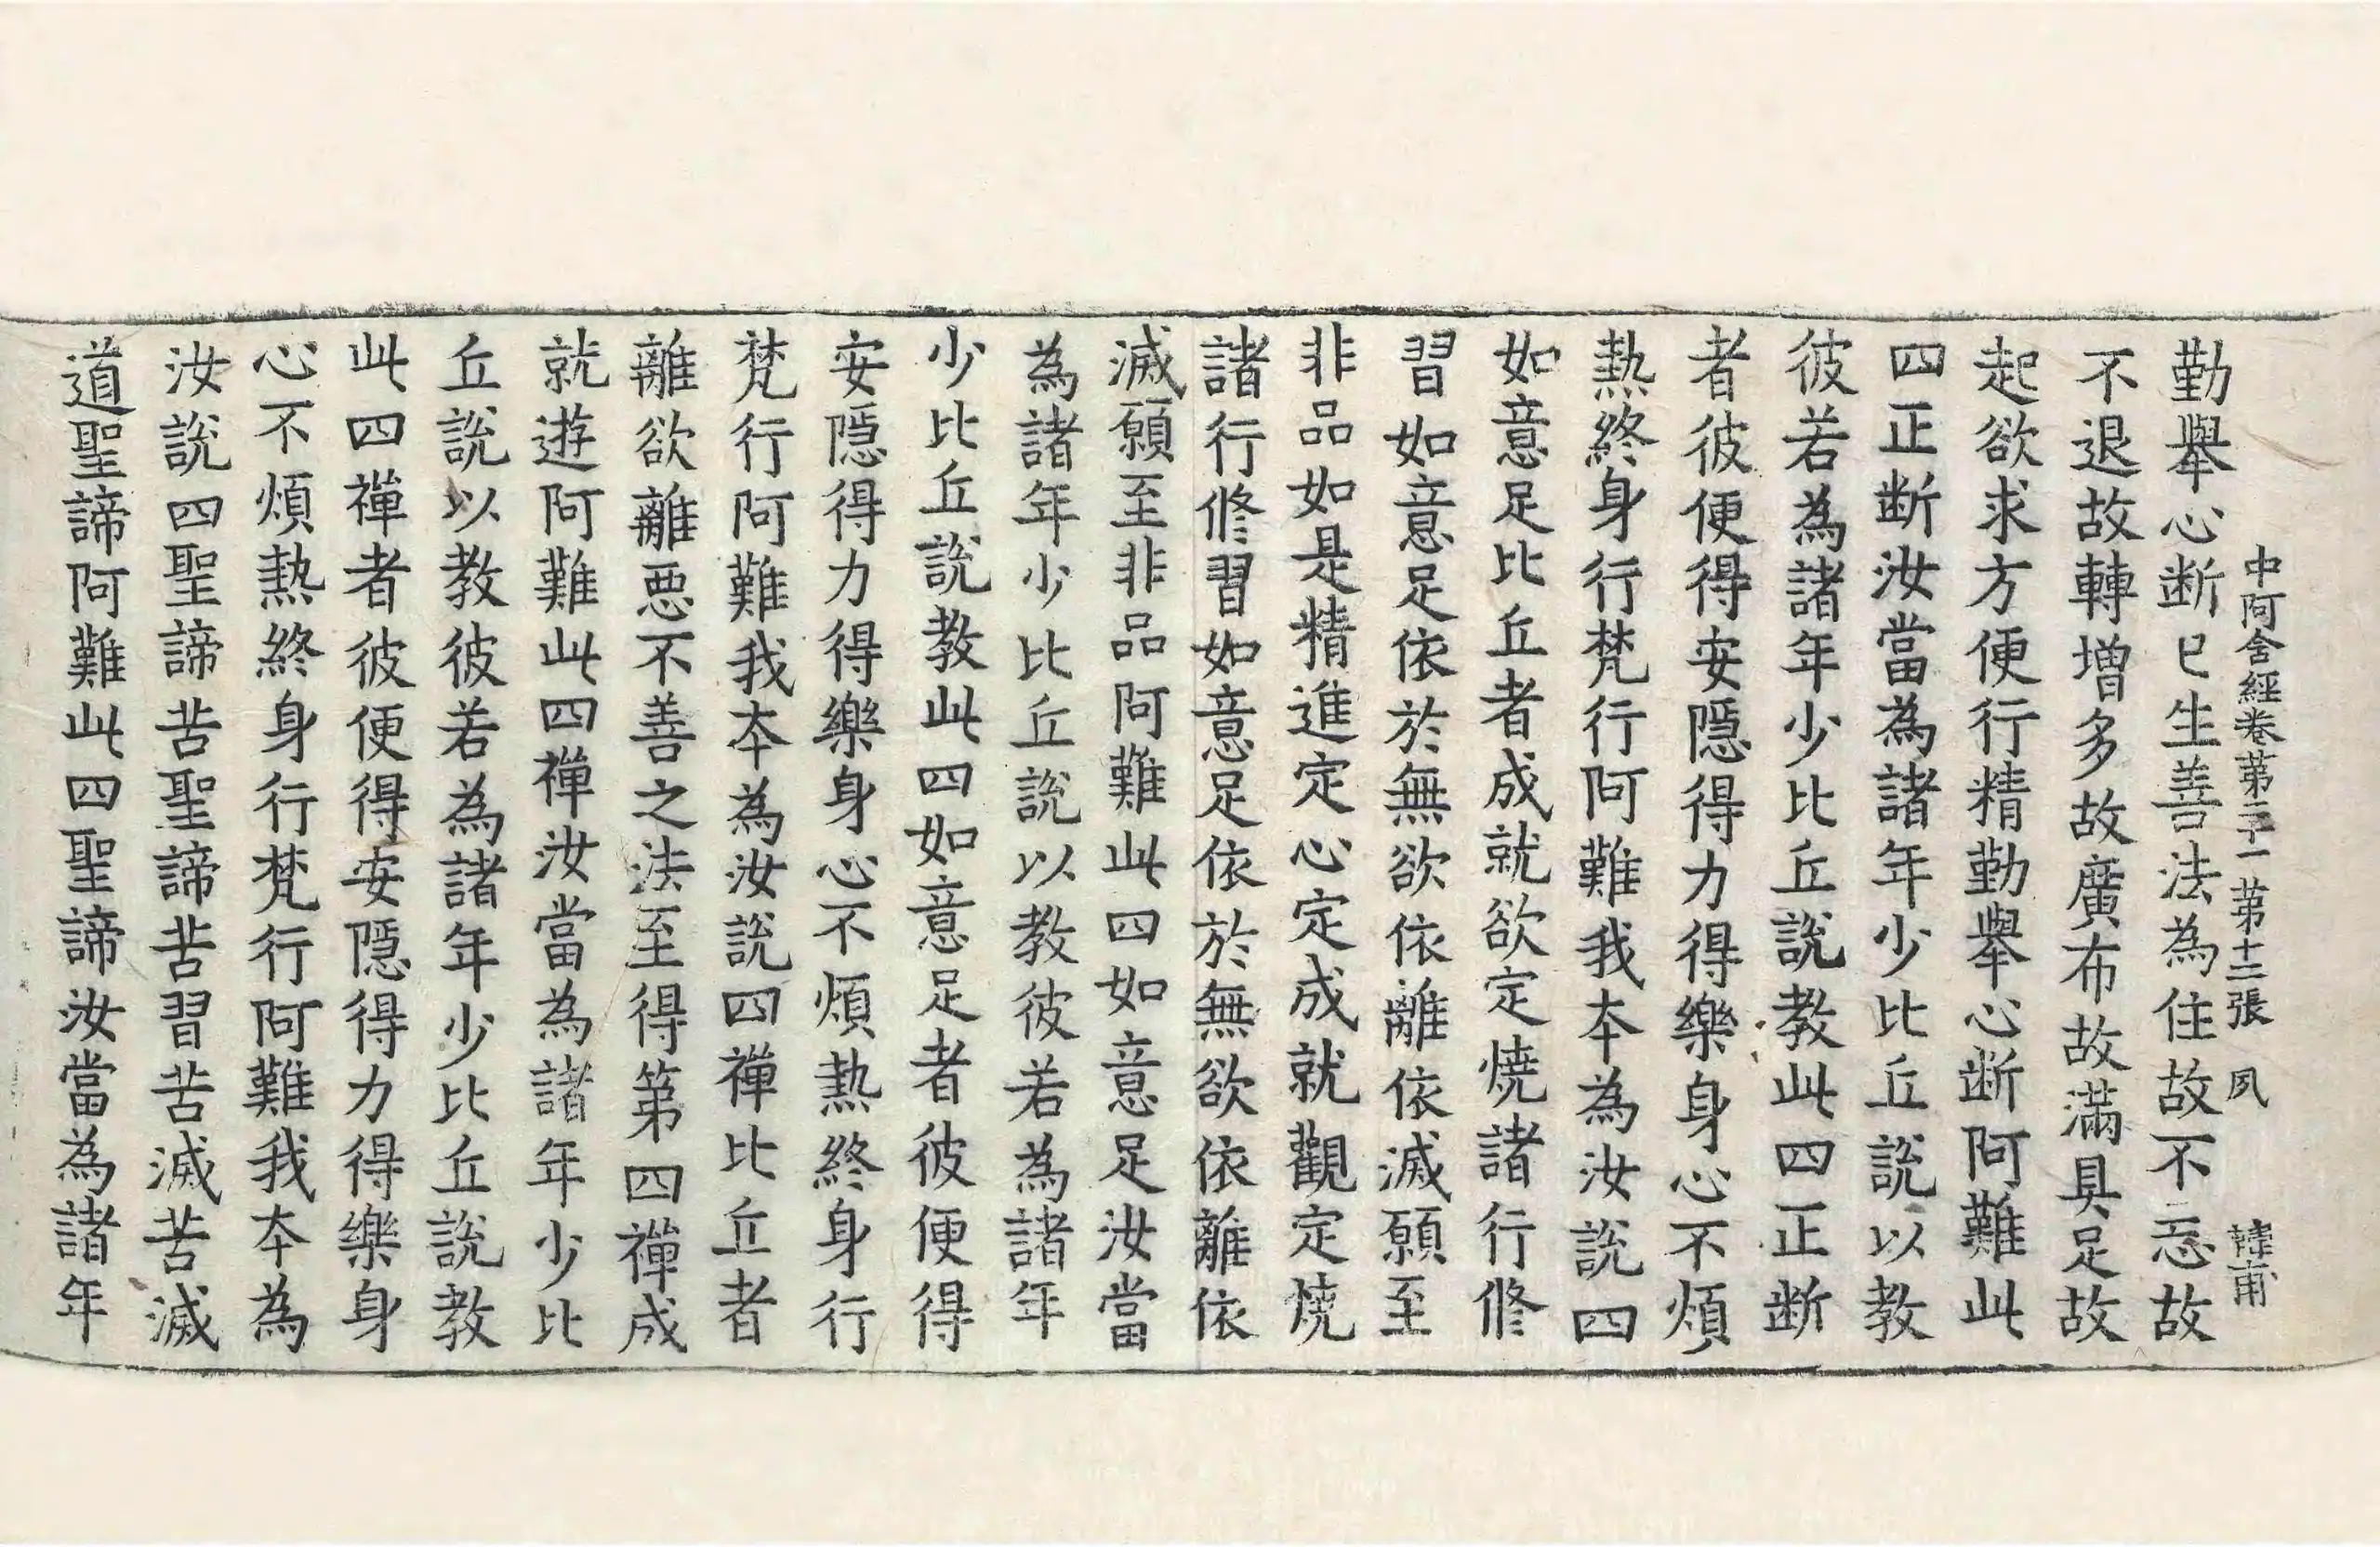 中阿含經卷第二十一 第十二張 夙
勤舉心断已生善法為住故不忘故
不退故轉增多故廣布故滿具足故
起欲求方便行精勤舉心断阿難此
四正断汝當為諸年少比丘說以教
彼若為諸年少比丘說教此四正断
者彼便得安隱得力得樂身心不煩
熱終身行梵行阿難我本為汝說四
如意足比丘者成就欲定燒諸行修
習如意足依於無欲依離依滅願至
非品如是精進定心定成就觀定燒
諸行修習如意足依於無欲依離依
滅願至非品阿難此四如意足汝當
為諸年少比丘說以教彼若為諸年
少比丘說教此四如意足者彼便得
安隱得力得樂身心不煩熱終身行
梵行阿難我本為汝說四禪比丘者
離欲離惡不善之法至得第四禪成
就遊阿難此四禪汝當為諸年少比
丘說以教彼若為諸年少比丘說教
此四禪者彼便得安隱得力得樂身
心不煩熱終身行梵行阿難我本為
汝說四聖諦苦聖諦苦習苦滅苦滅
道聖諦阿難此四聖諦汝當為諸年